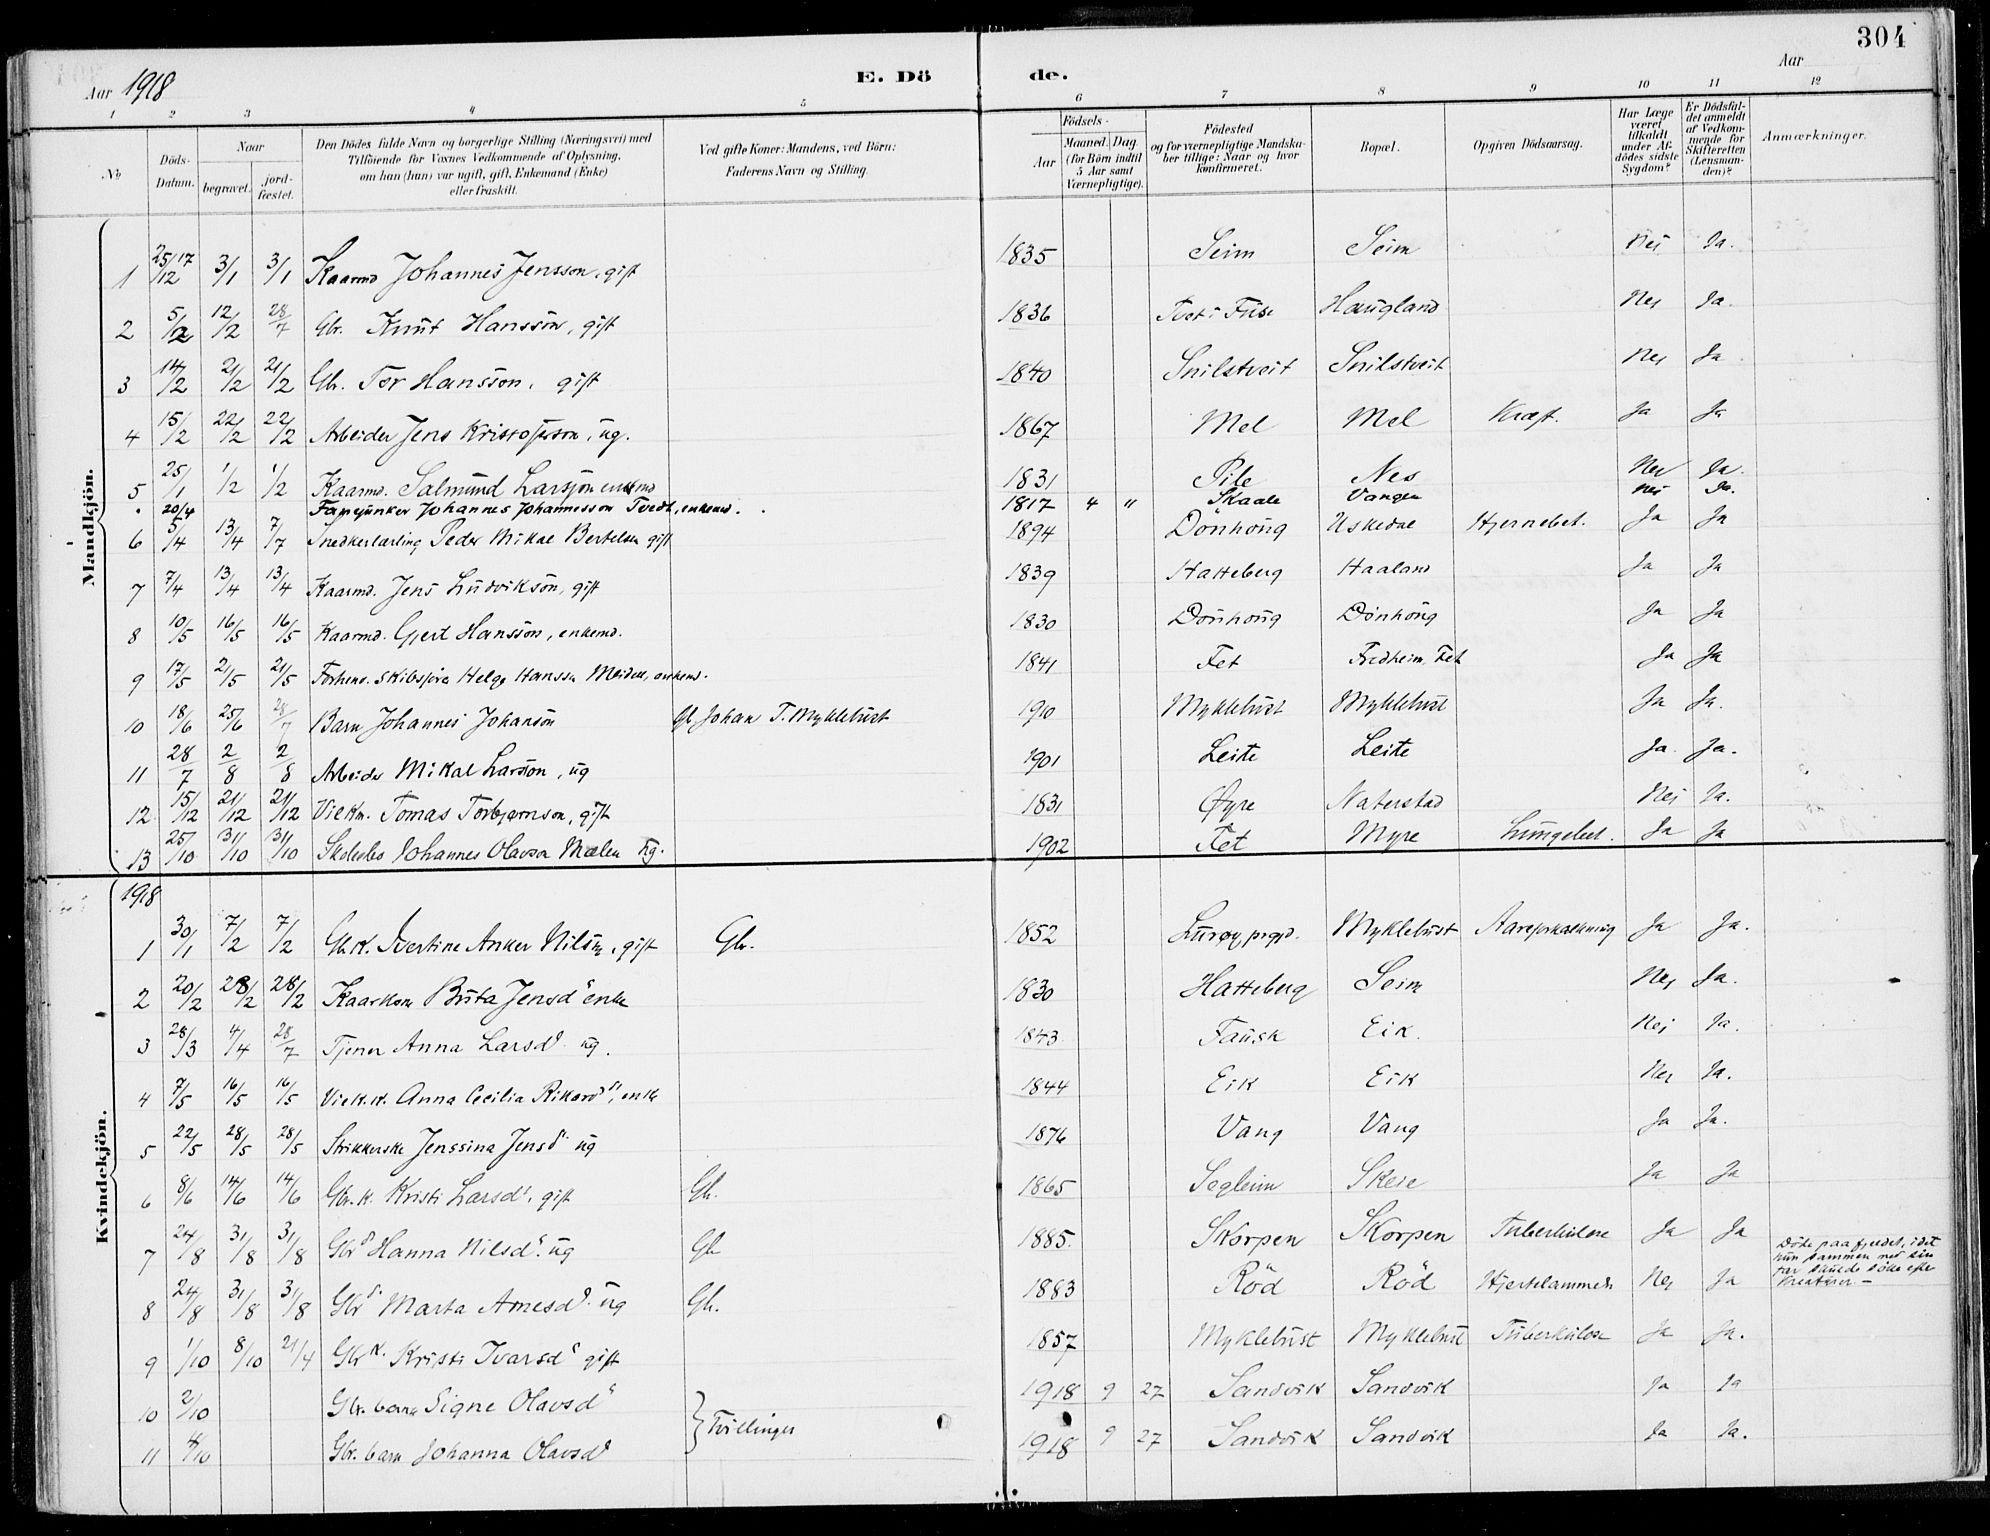 304
Aar 1918
E. Dö de.
Aar
1 2 3 4 5 6 7 8 9 10 11 12
No
Döds-Datum.
Naar begravet. jordfæstet.
Den Dödes fulde Navn og borgerlige Stilling (Næringsvei) med Tilföiende for Voxnes Vedkommende af Oplysning, om han (hun) var ugift, gift, Enkemand (Enke) eller fraskilt.
Ved gifte Koner: Mandens, ved Börn: Faderens Navn og Stilling.
Födsels-
Aar Maaned. Dag. (for Börn indtil 5 Aar samt Værnepligtige).
Födested og for værnepligtige Mandskaber tillige: Naar og hvor konfirmeret.
Bopæl.
Opgiven Dödsaarsag.
Har Læge været tilkaldt under Afdödes sidste Sygdom?
Er Dödsfaldet anmeldt af Vedkommende for Skifteretten (Lensmanden)?
Anmærkninger.
Mandkjön.
1 25/12 17 3/1 3/1 Kaarmd Johannes Jensson, gift 1835 Seim Seim Nei Ja.
2 5/2 12/2 28/7 Gbr. Knut Hansson, gift 1836 Tvet i Fuse Haugland Nei Ja.
3 14/2 21/2 21/2 Gbr. Tor Hansson, gift 1840 Snilstveit Snilstveit Nei Ja
4 15/2 22/2 22/2 Arbeider Jens Kristofferson, ug. 1867 Mel Mel Kræft. Ja Ja
5 25/1 1/2 1/2 Kaarmd. Salmund Larsson enkemd 1831 Pile Nes Nei Ja.
20/4 Fanejunker Johannes Johannesson Tvedt, enkemd. 1817 4 " Skaale Vangen Nei Ja.
6 5/4 13/4 7/7 Snedkerlærling Peder Mikal Bertelsen gift 1894 Dönhoug Uskedal Hjernebet. Ja Ja
7 7/4 13/4 13/4 Kaarmd. Jens Ludvikson, gift 1839 Hatteberg Haaland Ja Ja
8 10/5 16/5 16/5 Kaarmd. Gjert Hansson, enkemd. 1830 Dönhoug Dönhoug Ja Ja
9 17/5 21/5 21/5 Forhenv. Skibsfører Helge Hanssen Meidell, enkemd. 1841 Fet Fredheim, Fet Ja Ja
10 18/6 25/6 28/7 Barn Johannes Johanson Gb Johan T. Myklebust 1910 Myklebust Myklebust Ja Ja.
11 28/7 2/8 2/8 Arbeider Mikal Larsson, ug 1901 Leite Leite Ja. Ja.
12 15/12 21/12 21/12 Vilkm. Tomas Torbjørnson, gift 1831 Øyre Naterstad Nei Ja.
13 25/10 31/10 31/10 Skoleelev Johannes Olavson Mælen ug. 1902 Fet Myre Lungebet. Ja Ja
Kvindekjön.
1918
1 30/1 7/2 7/2 Gbr.k. Ivertine Anker Nilsen, gift Gbr. 1852 Lurøy prgjd. Myklebust Aareforkalkning Ja Ja.
2 20/2 28/2 28/2 Kaarkone Brita Jensdr enke 1830 Hatteberg Seim Nei Ja.
3 28/3 4/4 28/7 Tjener Anna Larsdr. ug. 1843 Fausk Eik. Nei Ja.
4 7/5 16/5 16/5 Vilk.k. Anna Cecilia Rikardr, enke 1844 Eik Eik Nei Ja.
5 22/5 28/5 28/5 Strikkerske Jenssina Jensdr. ug 1876 Vang Vang Ja Ja.
6 8/6 14/6 14/6 Gbr.k. Kristi Larsdr, gift Gb. 1865 Segleim Skeie Ja Ja
7 24/8 31/8 31/8 Gbrd Hanna Nilsdr. ug Gb 1885. Skorpen Skorpen Tuberkulose Ja Ja
8 24/8 31/8 31/8 Gbrd. Marta Arnesdr. ug Gb. 1883 Röd Röd Hjertelammelse Nei Ja Döde paa fjeldet, idet hun sammen med sin far skulde söke efter kreaturer. —
9 1/10 8/10 21/4 Gbrk. Kristi Ivarsdr gift 1857 Myklebust Myklebust Tuberkulose Ja Ja.
10 2/10 Gbr. barn Signe Olavsdr 1918 9 27 Sandvik Sandvik Ja Ja
Tvillinger
11 4/10 Gbr. barn Johanna Olavsdr 1918 9 27 Sandvik Sandvik Ja Ja.